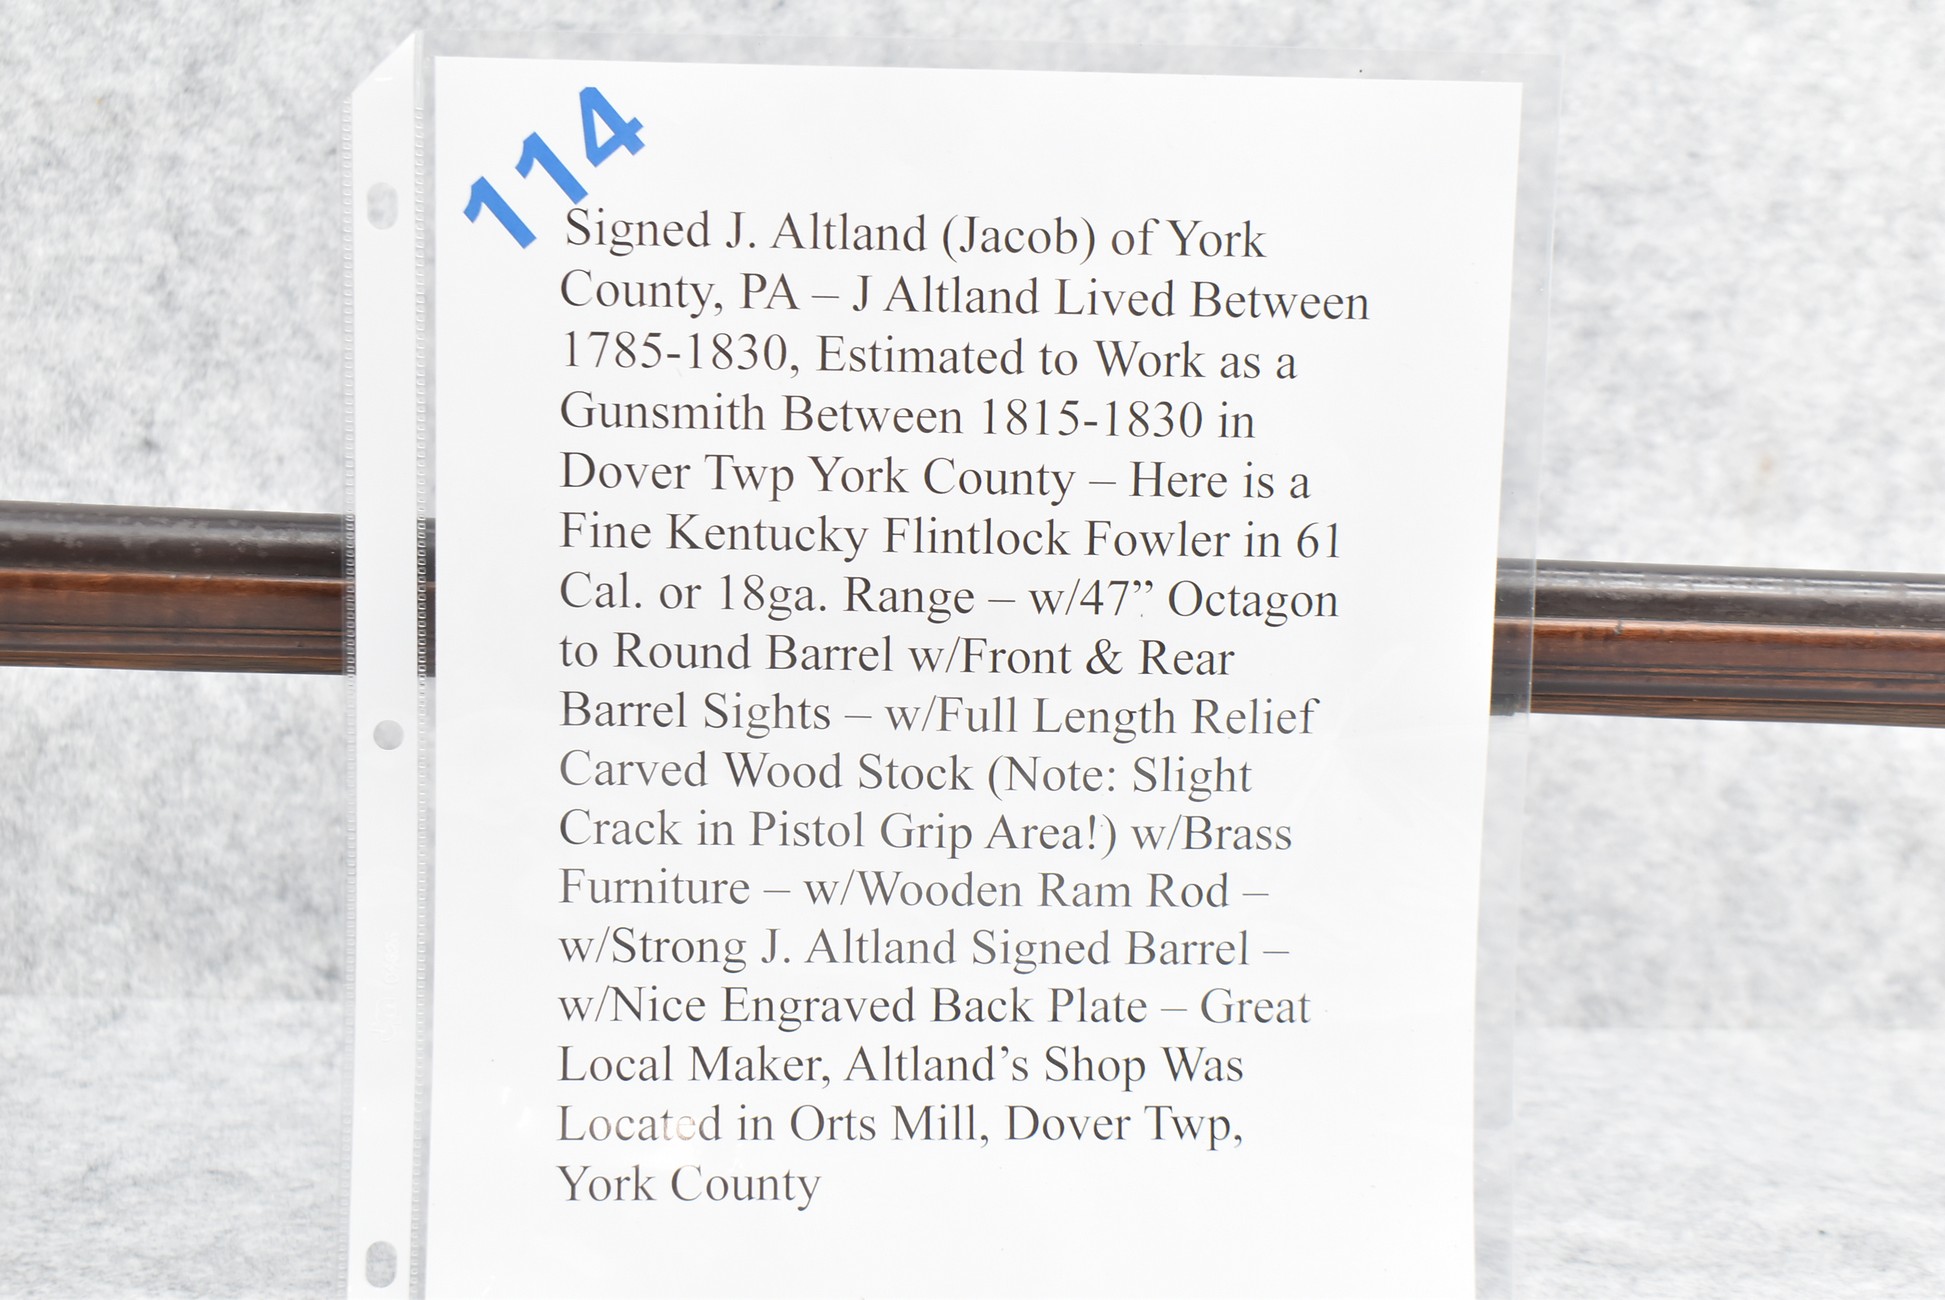 114
Signed J. Altland (Jacob) of York
County, PA – J Altland Lived Between
1785-1830, Estimated to Work as a
Gunsmith Between 1815-1830 in
Dover Twp York County – Here is a
Fine Kentucky Flintlock Fowler in 61
Cal. or 18ga. Range – w/47” Octagon
to Round Barrel w/Front & Rear
Barrel Sights – w/Full Length Relief
Carved Wood Stock (Note: Slight
Crack in Pistol Grip Area!) w/Brass
Furniture – w/Wooden Ram Rod –
w/Strong J. Altland Signed Barrel –
w/Nice Engraved Back Plate – Great
Local Maker, Altland’s Shop Was
Located in Orts Mill, Dover Twp,
York County